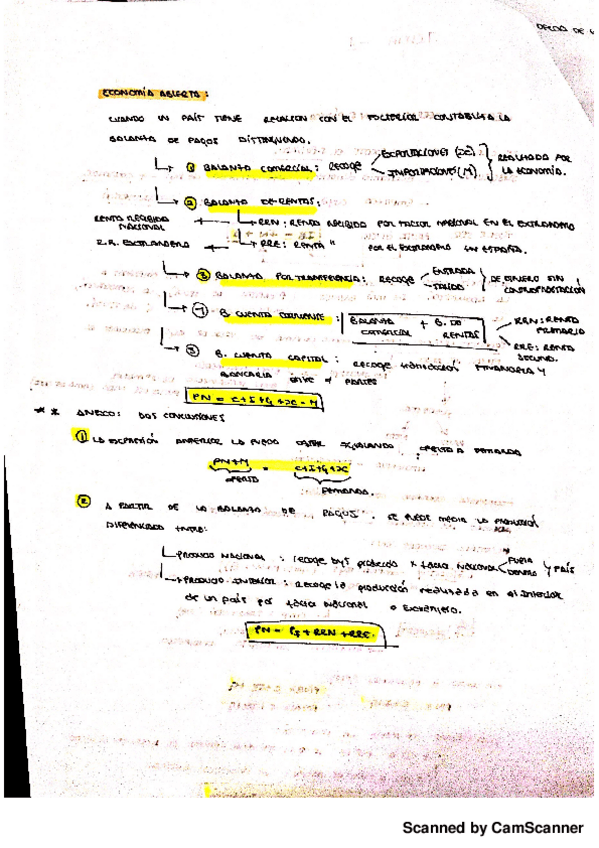 ECONOMÍA ABIERTA:
CUANDO UN PAÍS TIENE RELACIÓN CON EL EXTERIOR CONTABILIZA LA
BALANZA DE PAGOS DISTINGUIENDO.
① BALANZA COMERCIAL: RECOGE EXPORTACIONES (X) IMPORTACIONES (M) REALIZADA POR LA ECONOMÍA.
② BALANZA DE RENTAS:
RENTA RECIBIDA NACIONAL ← RRN: RENTA RECIBIDA POR FACTOR NACIONAL EN EL EXTRANJERO
R.R. EXTRANJERO ← RRE: RENTA " POR EL EXTRANJERO EN ESPAÑA.
③ BALANZA POR TRANSFERENCIA: RECOGE ENTRADA SALIDA DE DINERO SIN CONTRAPRESTACIÓN
④ B. CUENTA CORRIENTE: BALANZA COMERCIAL + B. DE RENTAS RRN: RENTA PRIMARIA RRE: RENTA SECUND.
⑤ B. CUENTA CAPITAL: RECOGE TRANSACCIÓN FINANCIERA Y
BANCARIA ENTRE ≠ PARTES
PN = C+I+G+X-M
** ANEXO: DOS CONCLUSIONES
① LA EXPRESIÓN ANTERIOR LA PUEDO IGUALANDO OFERTA A DEMANDA
PN+M = C+I+G+X
OFERTA DEMANDA.
② A PARTIR DE LA BALANZA DE PAGOS, SE PUEDE MEDIR LA PRODUCCIÓN
DIFERENCIADO ENTRE:
PRODUCTO NACIONAL: RECOGE bys PRODUCIDO x FACTOR NACIONAL FUERA DENTRO Y PAÍS
PRODUCTO INTERIOR: RECOGE LA PRODUCCIÓN REALIZADA EN EL INTERIOR
DE UN PAÍS POR FACTOR NACIONAL O EXTRANJERO.
PN = PI + RRN + RRE.
Scanned by CamScanner